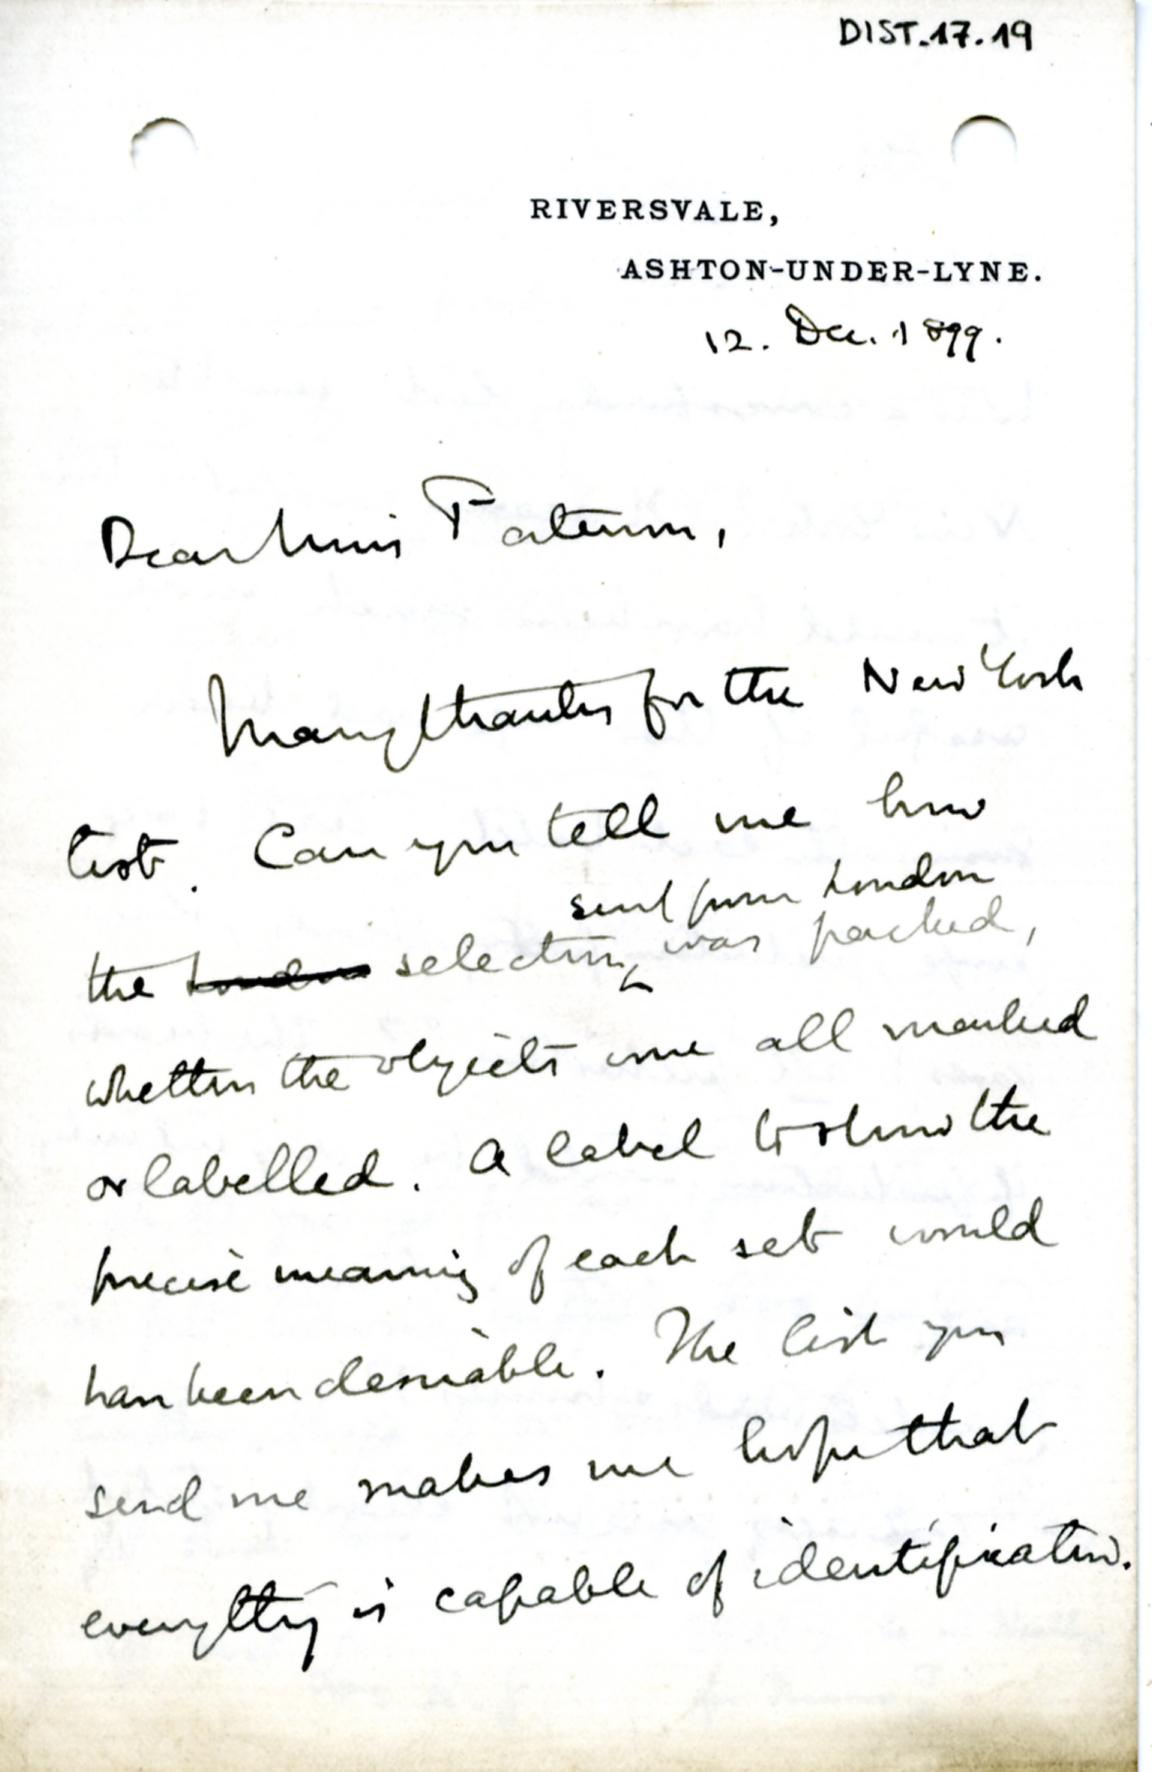 DIST.17.19
RIVERSVALE,
ASHTON-UNDER-LYNE.
12. Dec. 1899.
Dear Miss Paterson,
Many thanks for the New York
list. Can you tell me how
sent from London
the London selection was packed,
whether the objects were all marked
or labelled. A label to show the
precise meaning of each set would
have been desirable. The list you
send me makes me hope that
everything is capable of identification.